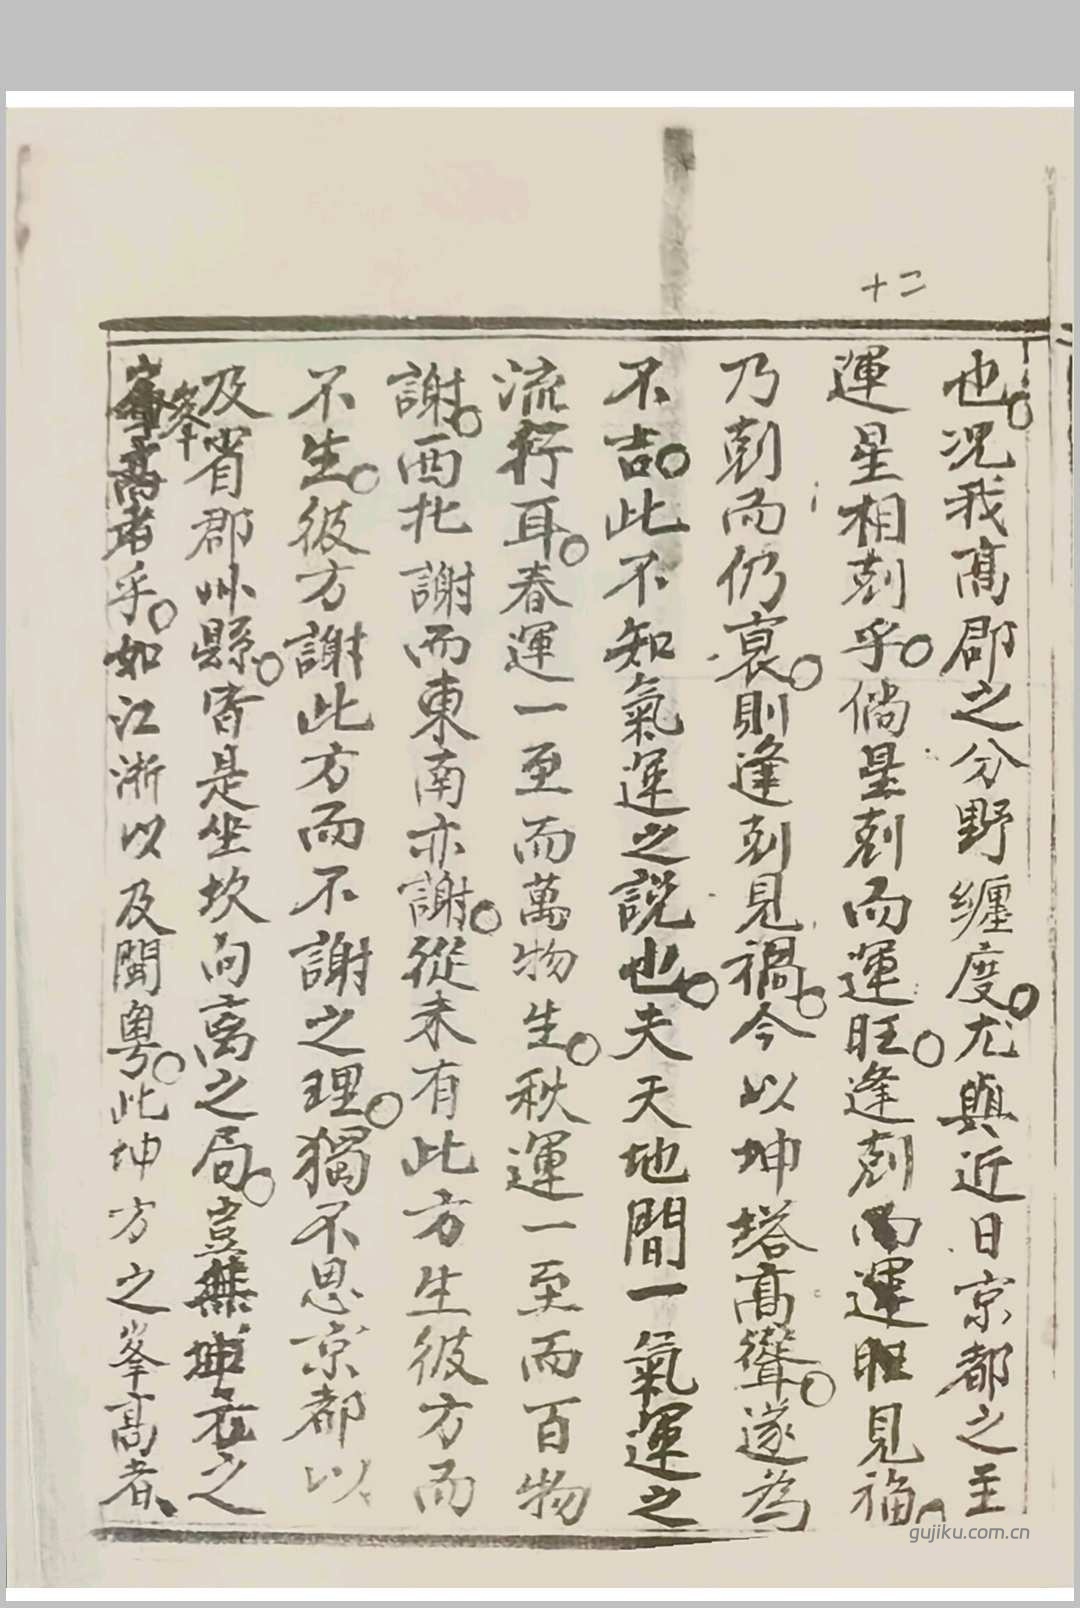 十二
也。况我髙郡之分野纏度。尤與近日京都之主
運星相剋乎。倘星剋而運旺。逢剋而運旺見福。
乃剋而仍衰。則逢剋見禍。今以坤塔髙聳。遂為
不吉。此不知氣運之説也。夫天地間一氣運之
流行耳。春運一至而萬物生。秋運一至而百物
謝。西北謝而東南亦謝。從未有此方生彼方而
不生。彼方謝此方而不謝之理。獨不思京都以
及省郡州縣。皆是坐坎向离之局。豈無坤方之
峯髙者乎。如江浙以及閩粵。此坤方之峯髙者、
gujiku.com.cn